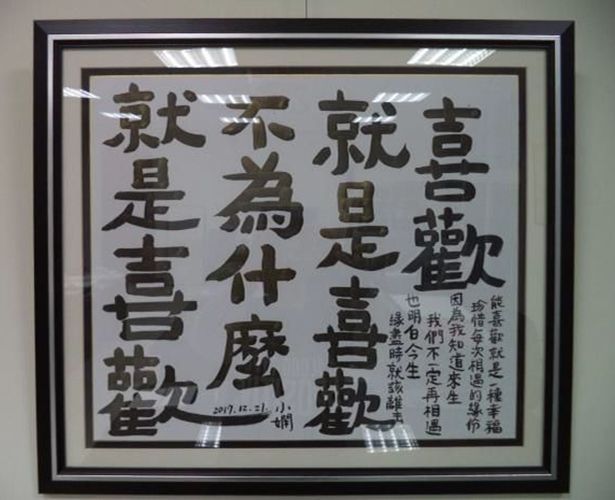 喜歡
就是喜歡
不為什麼
就是喜歡
能喜歡就是一種幸福
珍惜每次相遇的緣份
因為我知道來生
我們不一定再相遇
也明白今生
緣盡時就該離去
2017.12.21. 小嫻